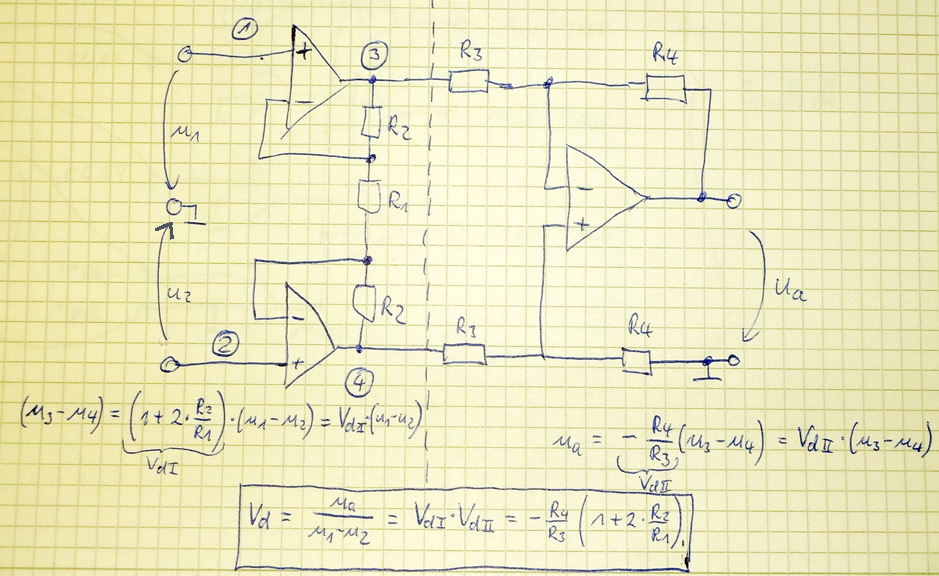 1
+
3
R3
R4
u1
−
R2
R1
−
+
u2
ua
2
−
+
R2
R3
R4
4
(u3−u4) = (1+2·R2/R1)·(u1−u2) = VdI·(u1−u2)
VdI
ua = −R4/R3(u3−u4) = VdII·(u3−u4)
VdII
Vd = ua/u1−u2 = VdI·VdII = −R4/R3(1+2·R2/R1).